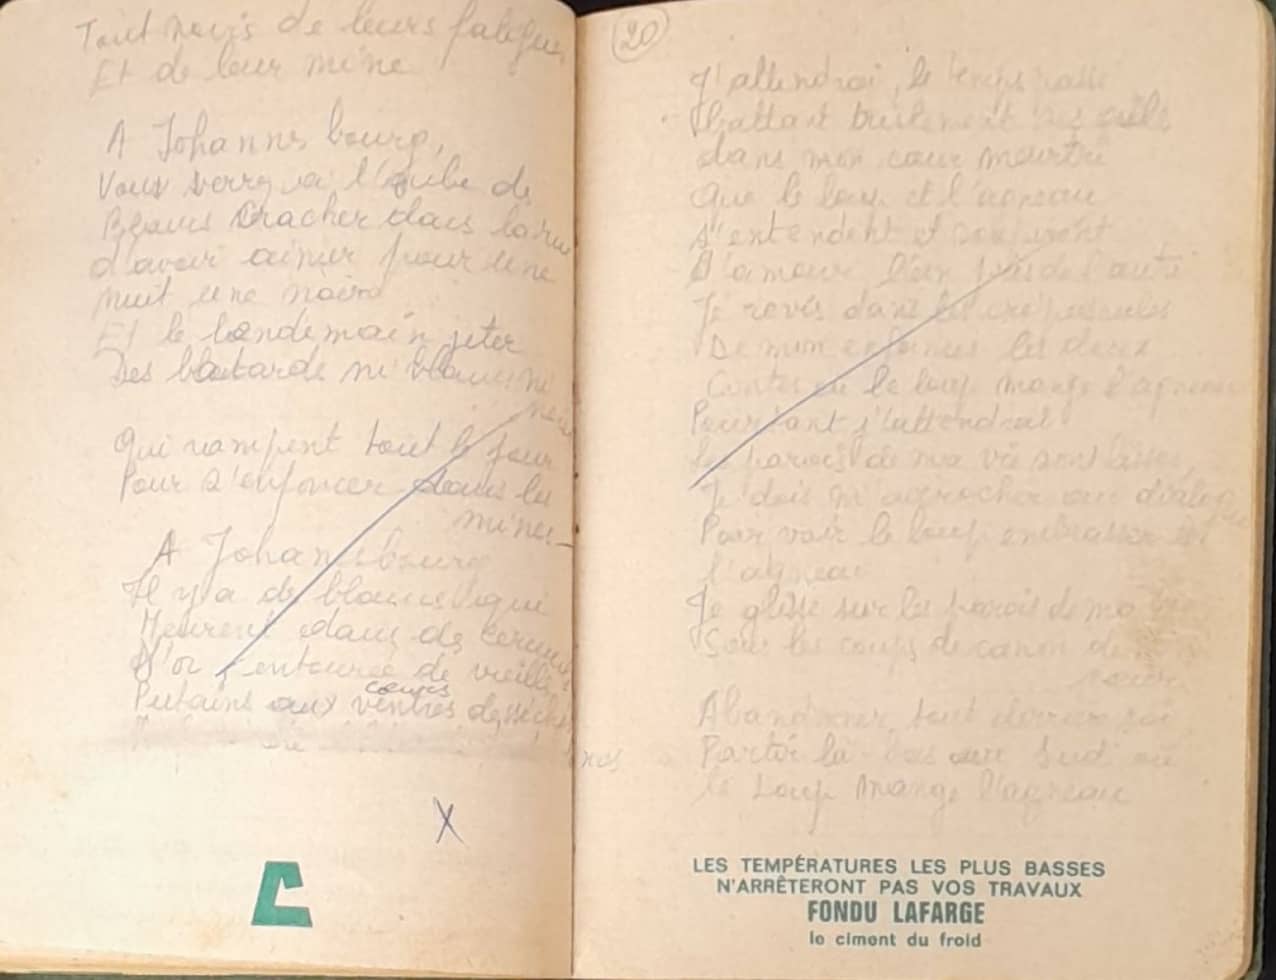 Tout noirs de leurs fatigues
Et de leur mine
A Johannesbourg,
Vous verrez à l'aube des
Blancs cracher dans la rue
d'avoir aimer pour une
nuit une noire
Et le lendemain jeter
Des batards ni blancs ni
noirs
Qui rampent tout le jour
Pour s'enfoncer dans les
mines
A Johannesbourg
Il y a des blancs qui
Meurent dans des
D'or entourée de vieilles
cœurs
Putains aux ventres desséchés
20
J'attendrai, le temps
battant
dans mon cœur meurtri
Que le loup et l'agneau
s'entendent et
D'amour l'un près de l'autre
Je revis dans les crépuscules
De mon enfances les vieux
Contes où le loup mange l'agneau
Pourtant j'attendrai
les parois de ma vie sont lisses,
Je dois m'accrocher au dialogue
Pour voir le loup embrasser
l'agneau
Je glisse sur les parois de ma vie
Sous les coups de canon de
Abandonner tout derrière soi
Partir là-bas au Sud où
le Loup mange l'agneau
LES TEMPÉRATURES LES PLUS BASSES
N'ARRÊTERONT PAS VOS TRAVAUX
FONDU LAFARGE
le ciment du froid